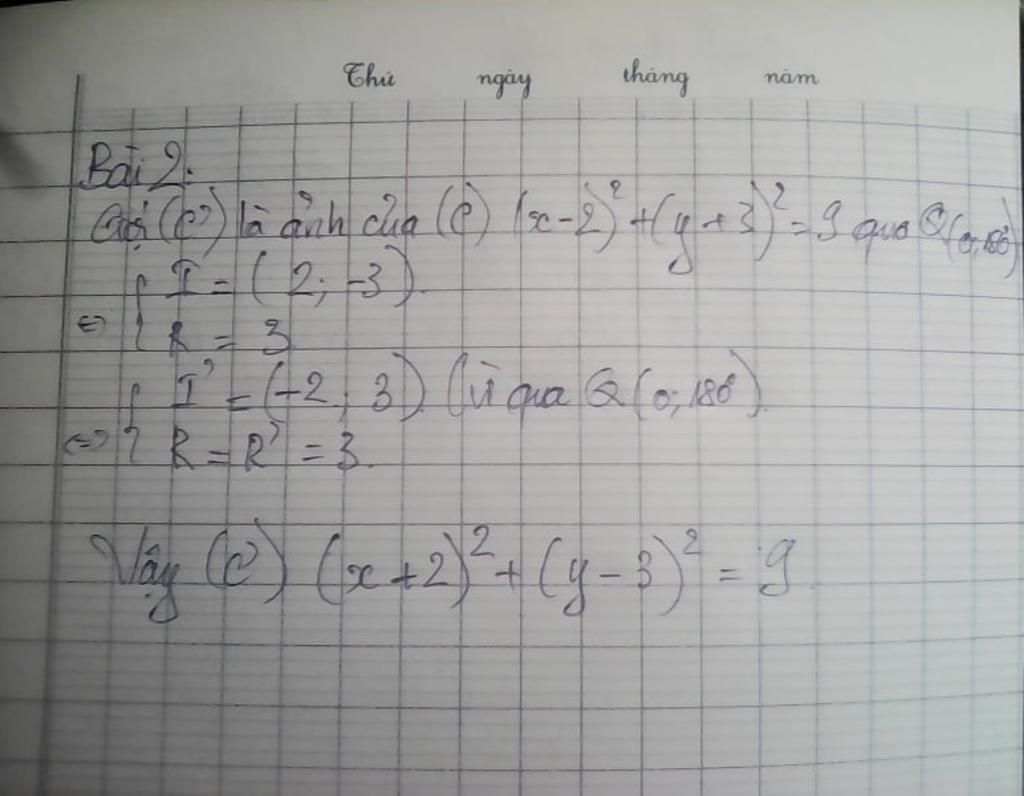 Thứ ngày tháng năm
Bài 2.
Gọi (C') là ảnh của (C) (x-2)²+(y+3)²=9 qua Q(0;180°)
⇔ { I = (2; -3).
R = 3
⇔ { I' = (-2; 3) (Vì qua Q(0;180°).
R = R' = 3.
Vậy (C') (x+2)²+(y-3)² = 9.